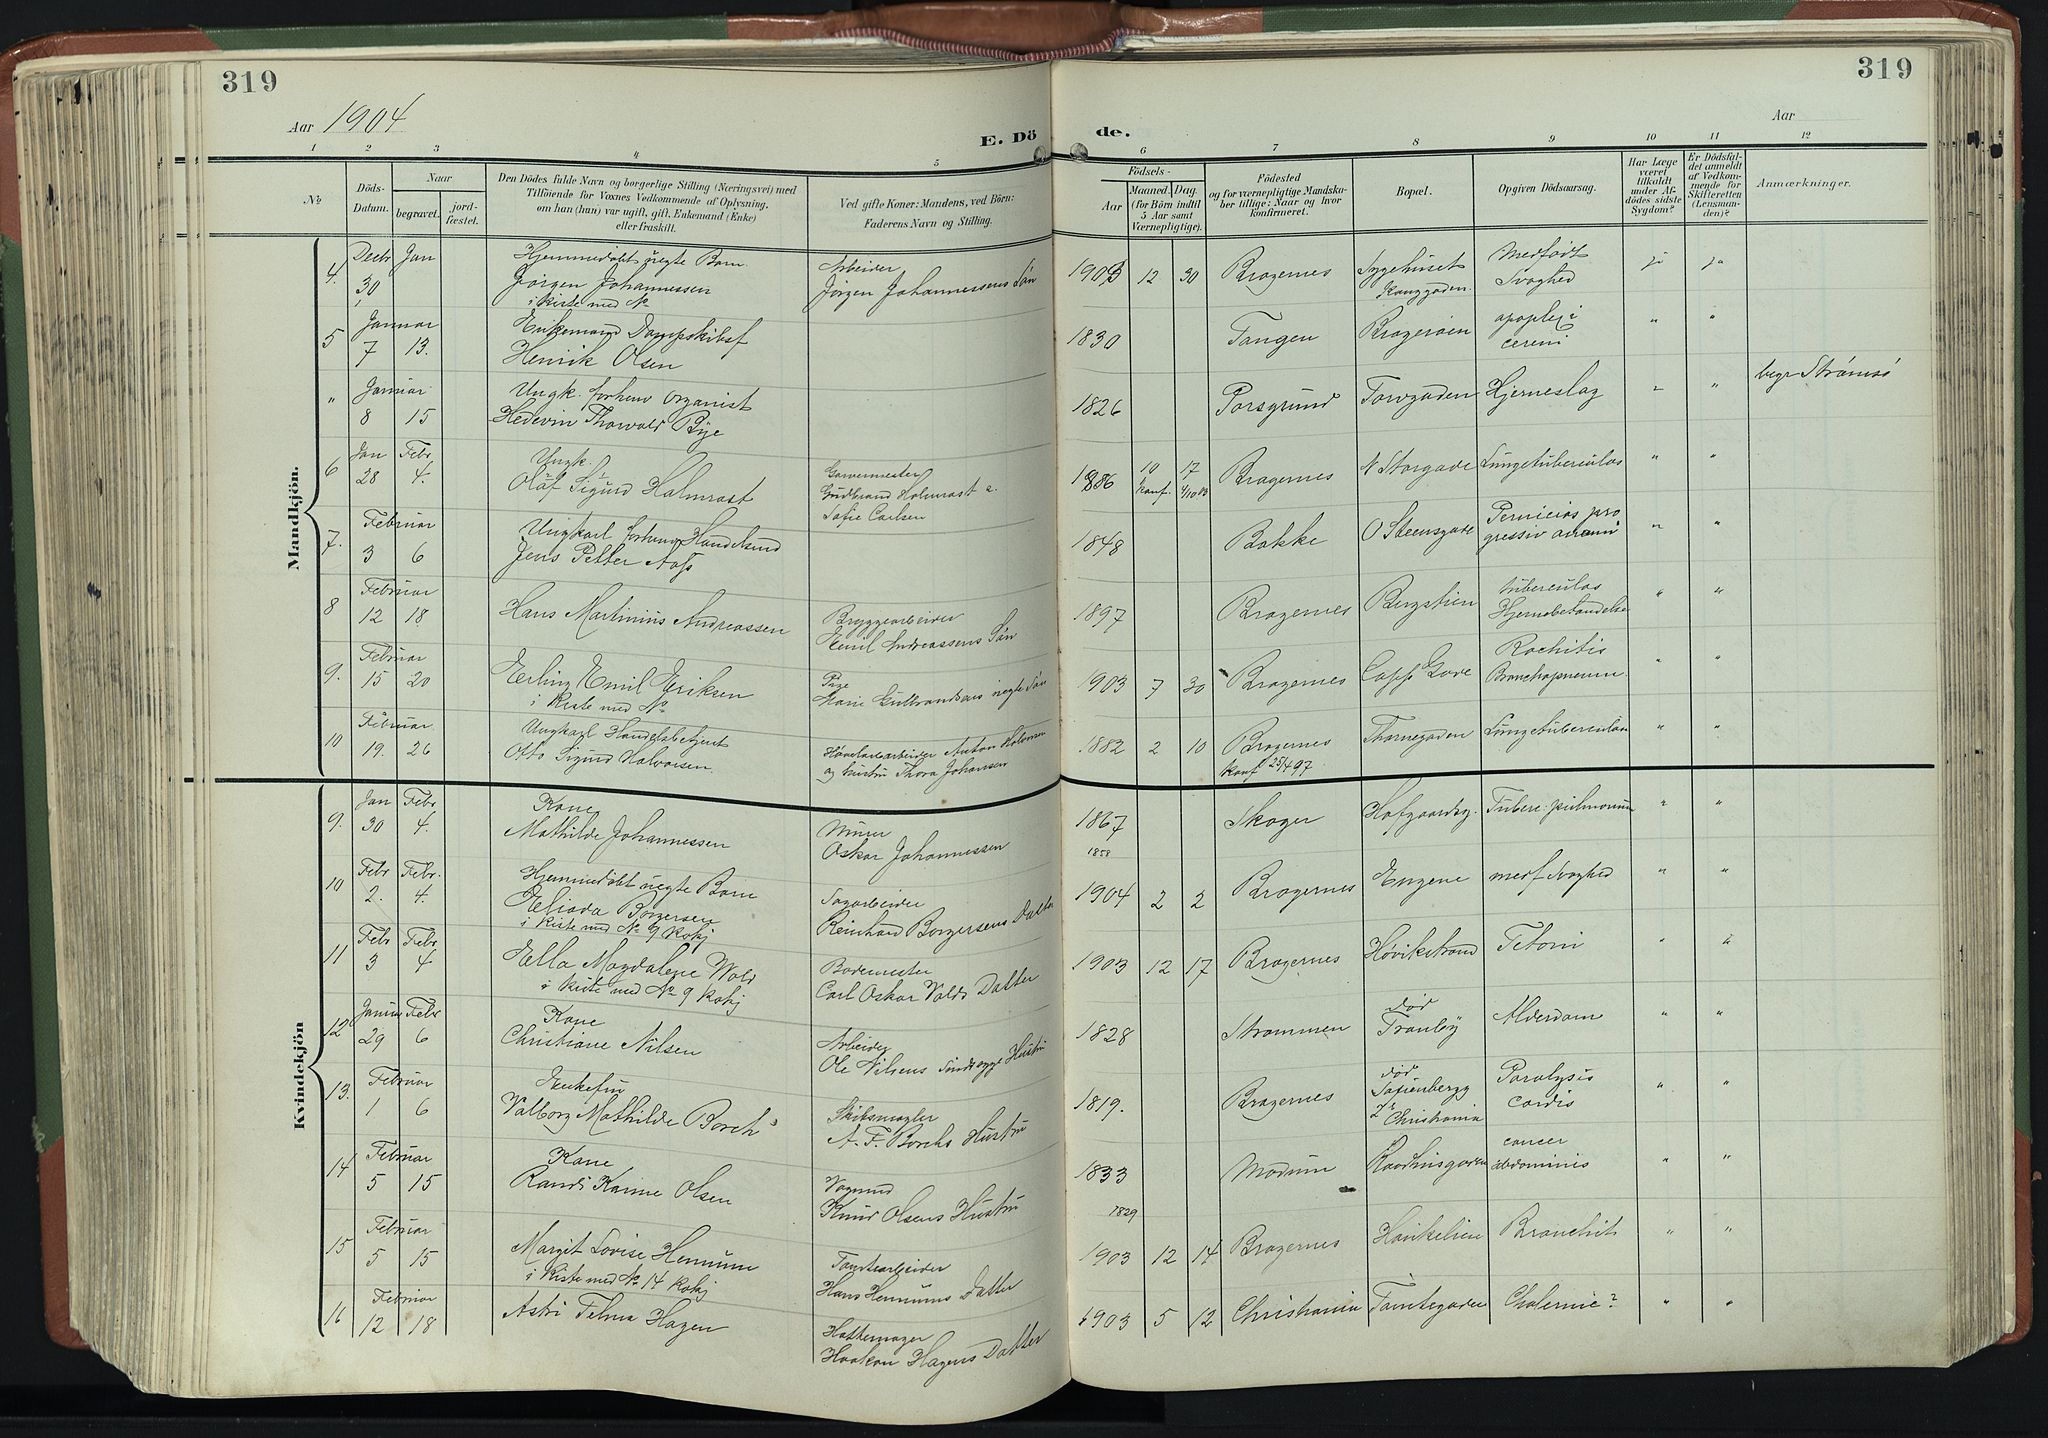 319
319
Aar 1904
Aar
E. Dö
de.
1 2 3 4 5 6 7 8 9 10 11 12
No
Döds-
Datum.
Naar
begravet.
jord-
fæstet.
Den Dödes fulde Navn og borgerlige Stilling (Næringsvei) med
Tilföiende for Voxnes Vedkommende af Oplysning,
om han (hun) var ugift, gift, Enkemand (Enke)
eller fraskilt.
Ved gifte Koner: Mandens, ved Börn:
Faderens Navn og Stilling.
Födsels-
Aar
Maaned.
Dag.
(for Börn indtil
5 Aar samt
Værnepligtige).
Födested
og for værnepligtige Mandska-
ber tillige: Naar og hvor
konfirmeret.
Bopæl.
Opgiven Dödsaarsag.
Har Læge
været
tilkaldt
under Af-
dödes sidste
Sygdom?
Er Dödsfal-
det anmeldt
af Vedkom-
mende for
Skifteretten
(Lensman-
den)?
Anmærkninger.
Mandkjön.
4. Decbr Jan Hjemmedøbt uegte Barn Arbeider
30 Jørgen Johannessen Jørgen Johannessens Søn 1903 12 30 Bragernes Sygehuset Medfødt ja ja
i Kiste med No Konggaden Svaghed
5 Januar Enkemand Dampskibsf
7 13. Henrik Olsen 1830 Tangen Bragerøen apoplexi " "
cerebri
" Januar Ungk. forhenv Organist
8 15 Hedevin Thorvald Bye 1826 Porsgrund Torvgaden Hjerneslag " " begr Strømsø
6 Jan Febr Ungk. Garvermester
28 4. Olaf Sigurd Holmrast Gudbrand Holmrast o. 1886 10 17 Bragernes N Storgade Lungetuberculos " "
Sofie Carlsen konf. 4/10 03
7. Februar Ungkarl forhenv Handelsmd
3 6 Jens Petter Aass 1848 Bakke O Steensgade Pernicios pro " "
gressiv anæmi
8 Februar
12 18. Hans Martinius Andreassen Bryggearbeider 1897 Bragernes Bergstien tuberculos " "
Emil Andreassens Søn Hjernebetændelse
9. Februar Pige
15 20 Erling Emil Eriksen Marie Gulbrandsens uegte Søn 1903 7 30 Bragernes Capp Gove Rachitis " "
i Kiste med No Bronchopneum.
10 Februar Ungkarl Handelsbetjent
19. 26 Otto Sigurd Halvorsen. Høvelarearbeider Anton Halvorsen 1882 2 10 Bragernes Thornegaden Lungetuberculose " "
og hustru Thora Johansen konf 25/4 97
Kvindekjön
9. Jan Febr Kone Murer
30 4. Mathilde Johannessen Oskar Johannessen 1867 Skoger Hofgaardsg. Tuberc: pulmonum " "
1858
10 Febr Febr. Hjemmedøbt uegte Barn Sagarbeider
2. 4. Elida Borgersen Reinhard Borgersens Datter 1904 2 2 Bragernes Engene medf Svaghed " "
i Kiste med No 9 Kvkj
11 Febr Febr Bademester
3 4 Ella Magdalene Wold Carl Oskar Volds Datter 1903 12 17 Bragernes Høvikstrand Tetani " "
i Kiste med No 9 Kvkj
12 Januar Febr Kone Arbeider
29 6 Christiane Nilsen Ole Nilsens Hustru 1828 Strømmen død Alderdom " "
Tranby
13. Februar Enkefru Skibsmægler
1 6 Valborg Mathilde Borch A. F. Borchs Hustru 1819. Bragernes død Paralysis " "
Sofienberggd cordis
Christiania
14 Februar Kone Vognmd
5 15 Randi Karine Olsen Knud Olsens Hustru 1833 Modum Raadhusgaden cancer " "
1829 abdominis
15 Februar Tomtearbeider
5 15 Margit Lovise Hennum Hans Hennums Datter 1903 12 14 Bragernes Havikelien Bronchit " "
i Kiste med No 14 Kvkj
16 Februar Hattemager
12 18 Astri Telma Hagen Haakon Hagens Datter 1903 5 12 Christiania Tomtegaden Cholerine? " "